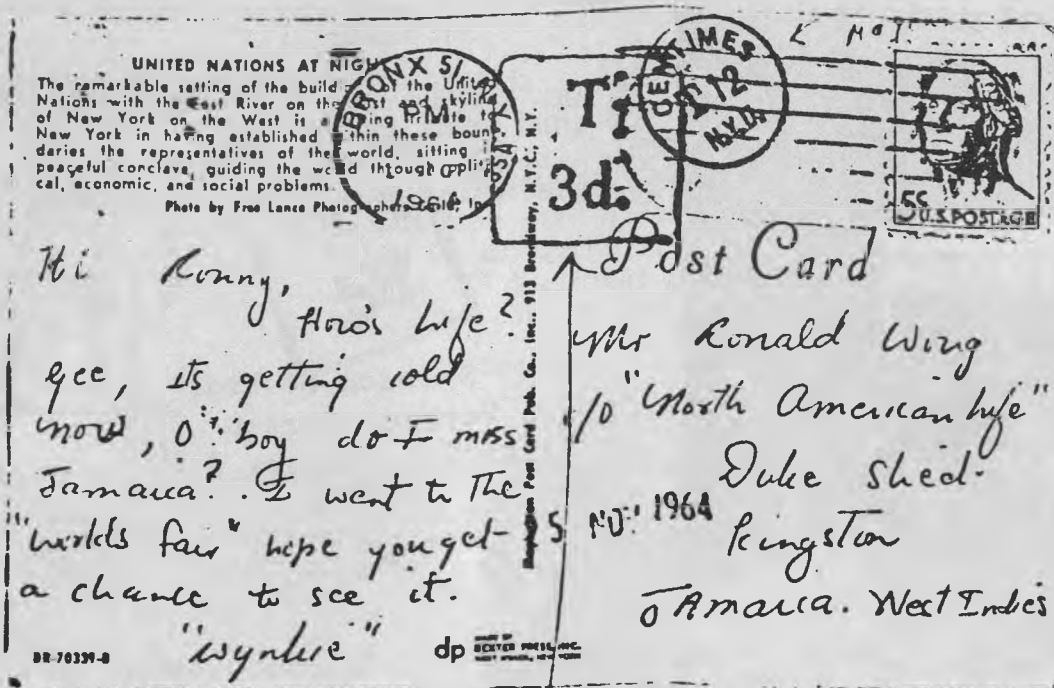 UNITED NATIONS AT NIGH
The remarkable setting of the build of the Unite
Nations with the East River on the st and skyline
of New York on the West is a ing tribute to
New York in having established thin these boun
daries the representatives of the world, sitting
peaceful conclave, guiding the world through politi
cal, economic, and social problems.
Photo by Free Lance Photographers Guild, In
BRONX 51 N.Y.
PM
1964
USA
T
3d.
CENTIMES
12
N.Y.D.
5¢
U.S. POSTAGE
Post Card
Hi Ronny,
How's life?
gee, its getting cold
now, O boy do I miss
Jamaica?. I went to the
"worlds fair" hope you get
a chance to see it.
"Wynkie"
Mr Ronald Wing
c/o "North American life"
Duke Shed.
Kingston
JAmaica. West Indies
5 NO 1964
Post Card Pub. Co., Inc., 913 Broadway, N.Y.C., N.Y.
DR-70339-B
dp
MADE BY
DEXTER PRESS, INC.
WEST NYACK, NEW YORK